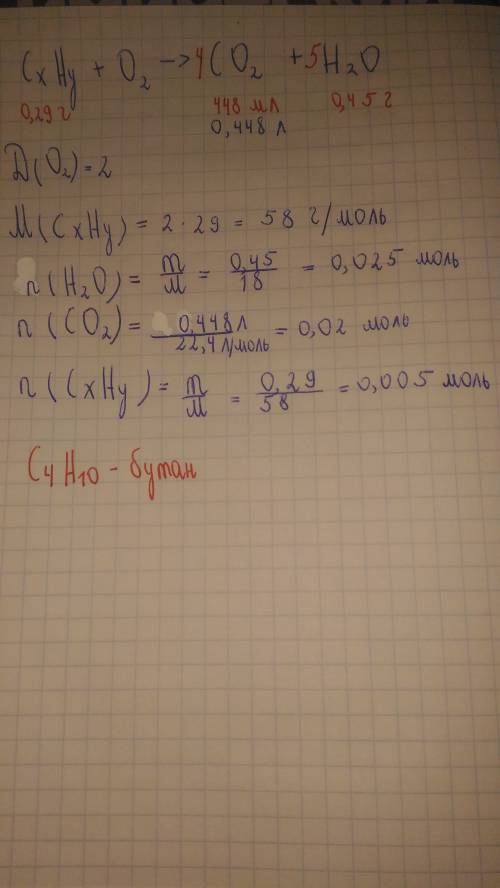 CxHy + O₂ -> 4CO₂ + 5H₂O
0,29 г 448 мл 0,45 г
0,448 л
D(O₂) = 2
M(CxHy) = 2 · 29 = 58 г/моль
n(H₂O) = m/M = 0,45/18 = 0,025 моль
n(CO₂) = 0,448 л/22,4 л/моль = 0,02 моль
n(CxHy) = m/M = 0,29/58 = 0,005 моль
C₄H₁₀ - бутан